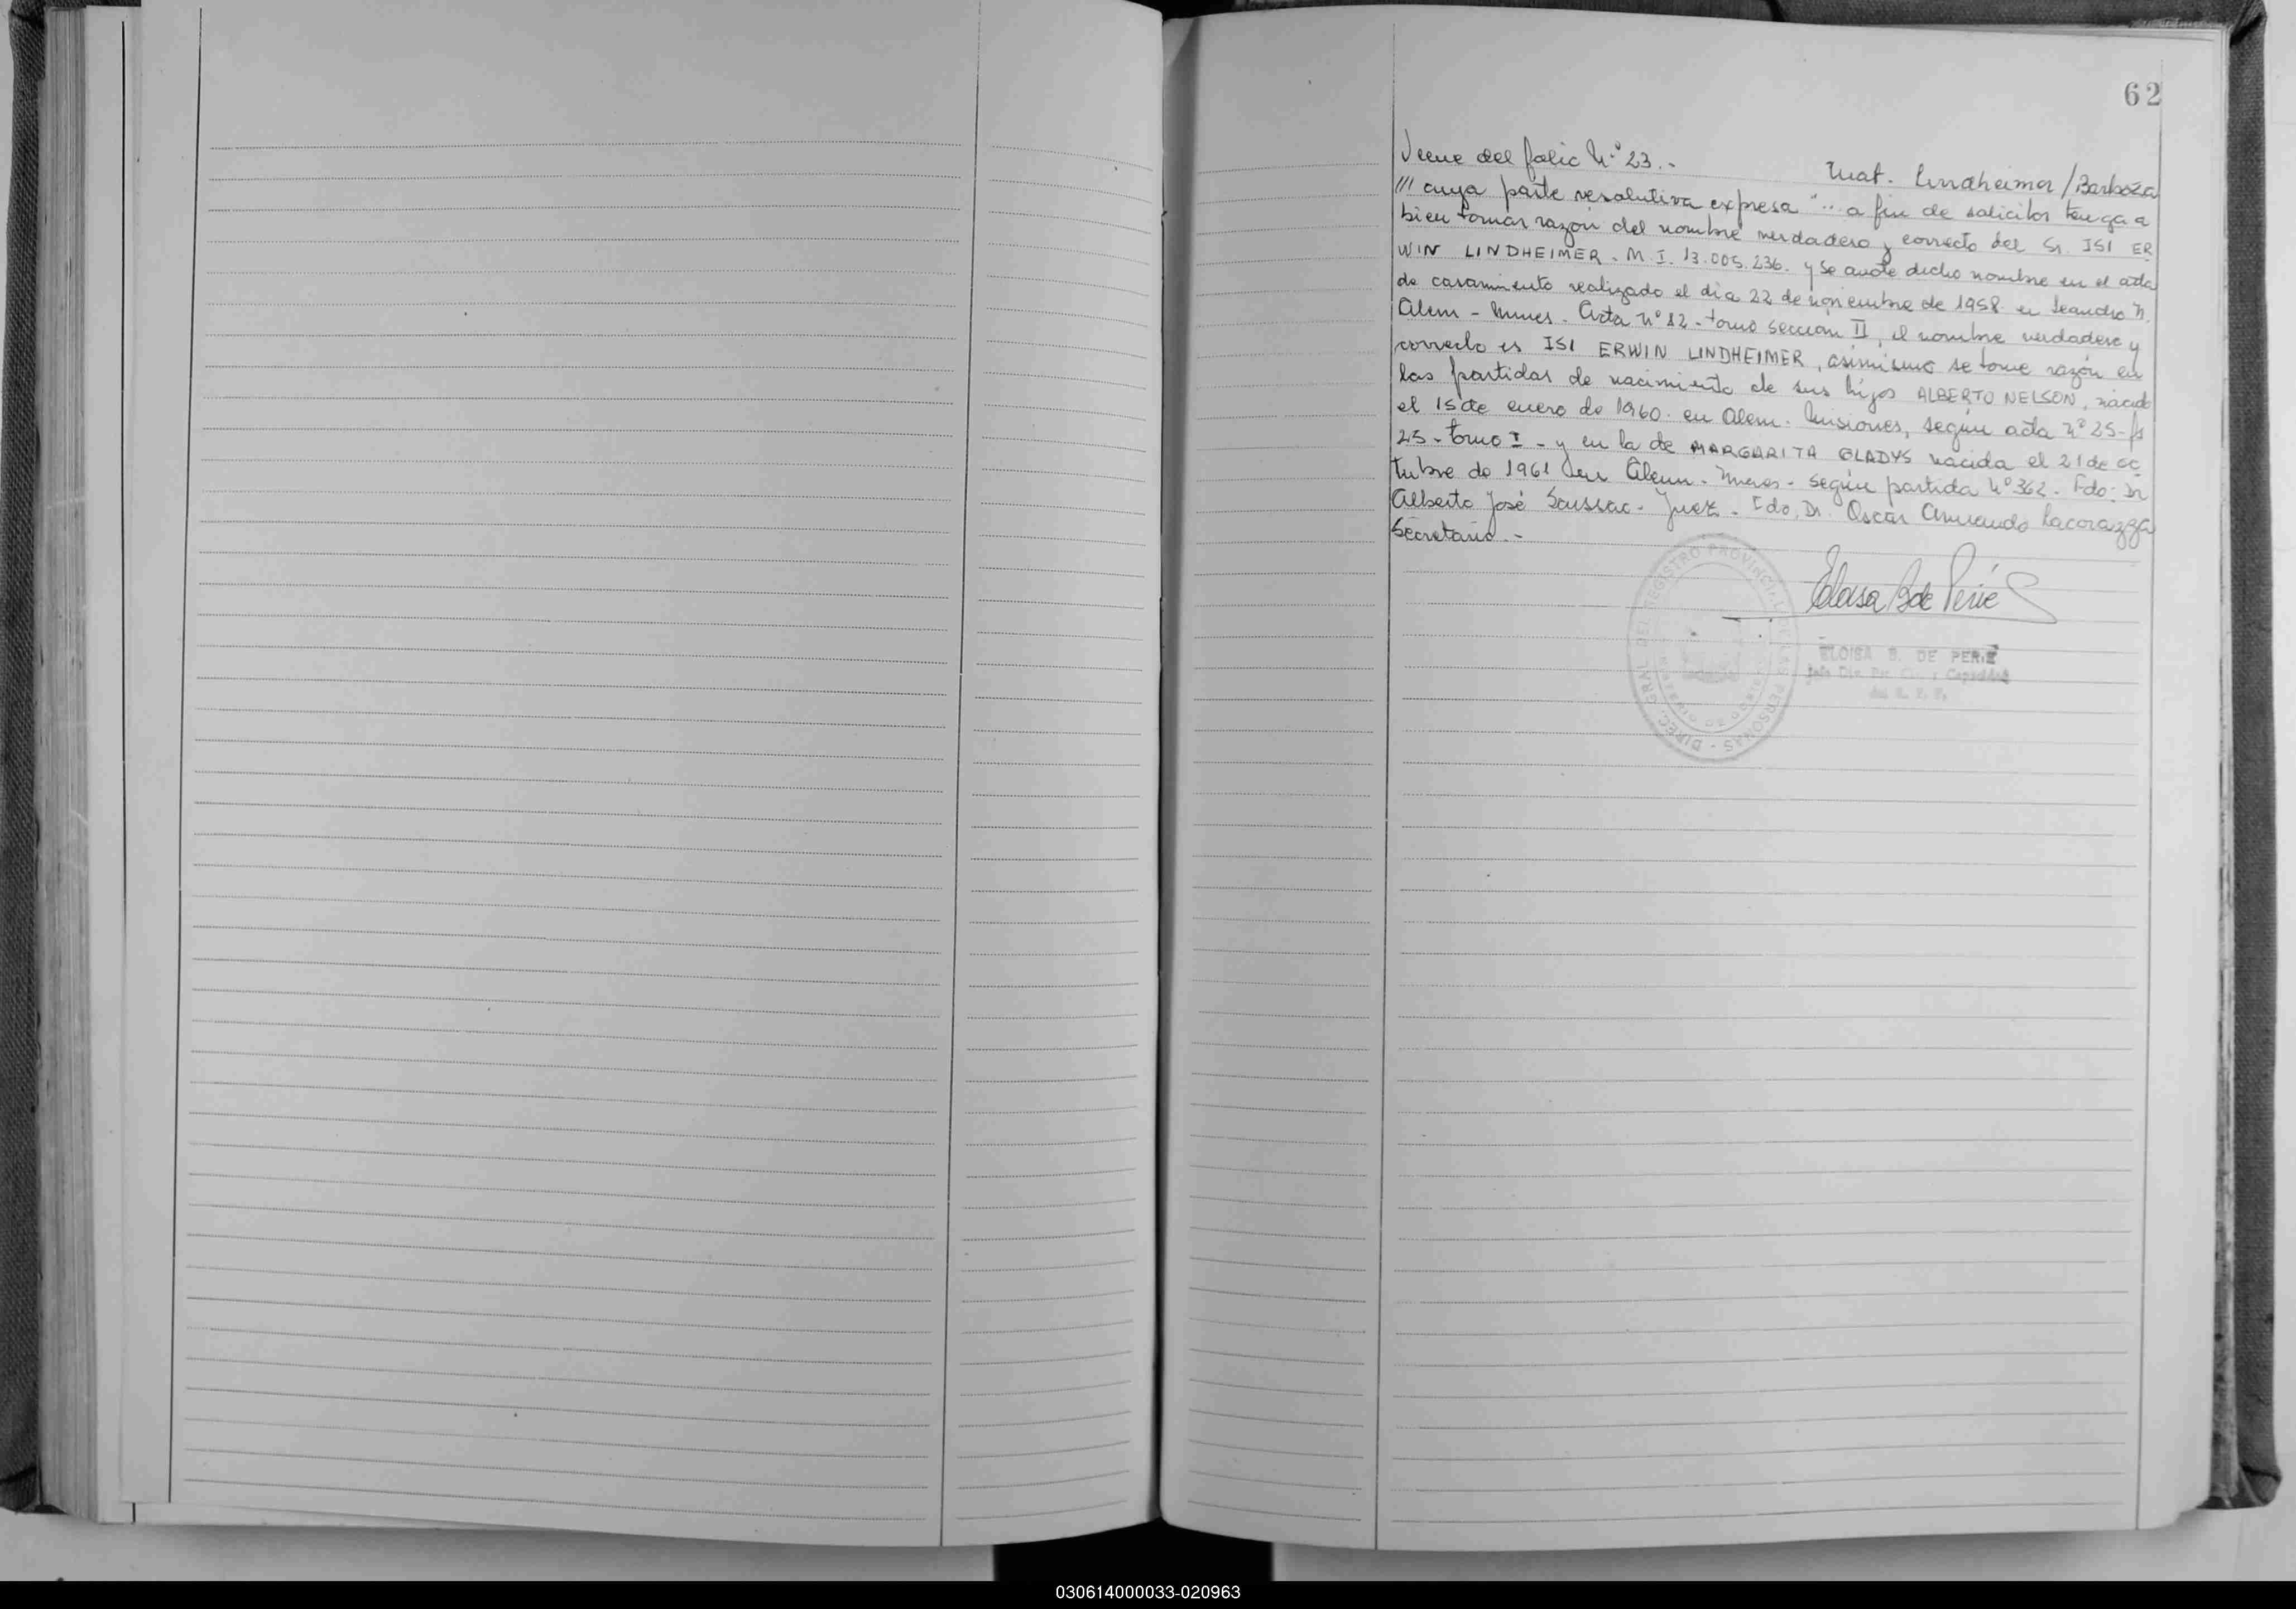 62
Viene del folio N° 23.-
Mat. Lindheimer/Barboza
/// cuya parte resolutiva expresa "... a fin de solicitar tenga a
bien tomar razón del nombre verdadero y correcto del Sr. ISI ER
WIN LINDHEIMER. M.I. 13.005.236. y se anote dicho nombre en el acta
de casamiento realizado el día 22 de noviembre de 1958 en Leandro N.
Alem - Mnes. Acta N° 82 - tomo sección II, el nombre verdadero y
correcto es ISI ERWIN LINDHEIMER, asimismo se tome razón en
las partidas de nacimiento de sus hijos ALBERTO NELSON, nacido
el 15 de enero de 1960 en Alem. Misiones, según acta N° 25 - fs
25 - tomo I - y en la de MARGARITA GLADYS nacida el 21 de oc
tubre de 1961 en Alem - Mnes - según partida N° 362. Fdo: Dr
Alberto José Soussac - Juez - Fdo. Dr. Oscar Armando Lacorazza
Secretario.-
Eloisa B de Perié
DIREC. GRAL DEL REGISTRO PROVINCIAL DE LAS PERSONAS
ELOISA B. DE PERIE
030614000033-020963